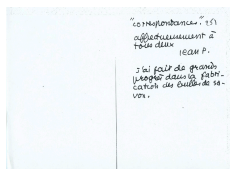 "correspondances".
affectueusement à
tous deux
Jean P.
J'ai fait de grands
progrès dans la fabri-
cation des bulles de sa-
von.